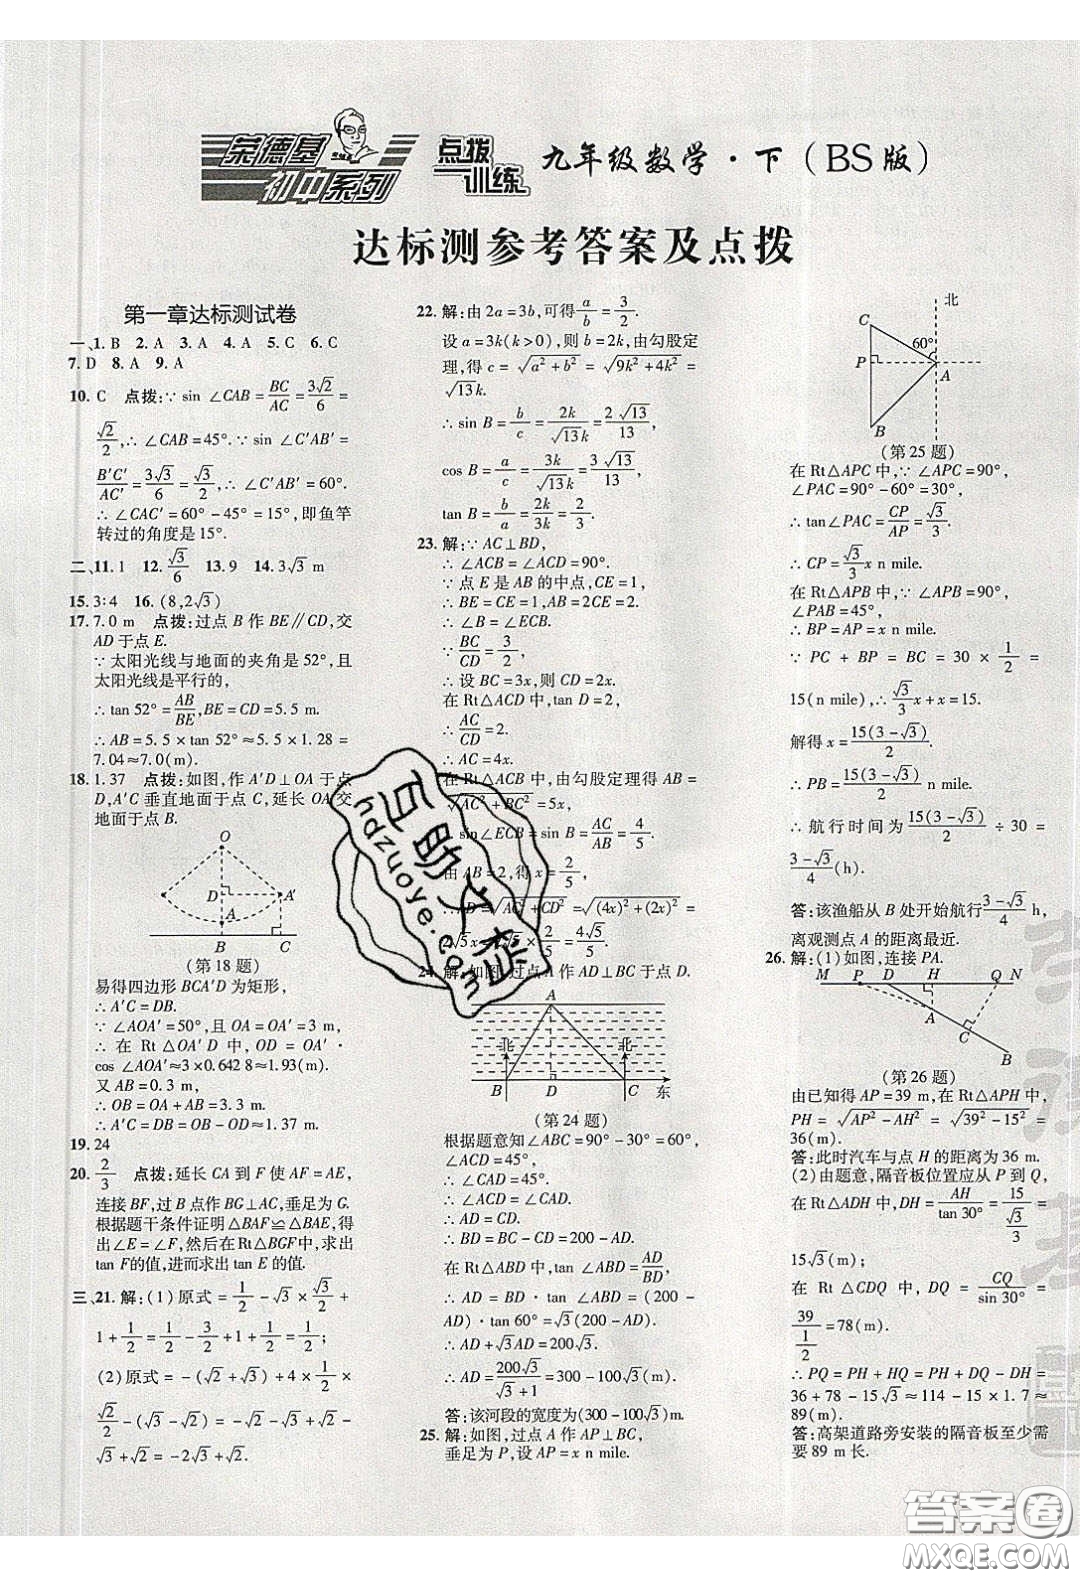 荣德基
初中系列
点拨
训练
九年级数学·下(BS版)
达标测参考答案及点拨
第一章达标测试卷
一、1. B 2. A 3. A 4. A 5. C 6. C
7. D 8. A 9. A
10. C 点拨:∵ sin ∠CAB = BC/AC = 3√2/6 =
√2/2, ∴ ∠CAB = 45°. ∵ sin ∠C′AB′ =
B′C′/AC′ = 3√3/6 = √3/2, ∴ ∠C′AB′ = 60°.
∴ ∠CAC′ = 60° - 45° = 15°, 即鱼竿
转过的角度是 15°.
二、11. 1 12. √3/6 13. 9 14. 3√3 m
15. 3:4 16. (8,2√3)
17. 7.0 m 点拨:过点 B 作 BE∥CD,交
AD 于点 E.
∵ 太阳光线与地面的夹角是 52°,且
太阳光线是平行的,
∴ tan 52° = AB/BE, BE = CD = 5.5 m.
∴ AB = 5.5 × tan 52° ≈ 5.5 × 1.28 =
7.04 ≈ 7.0(m).
18. 1.37 点拨:如图,作 A′D⊥OA 于点
D,A′C 垂直地面于点 C,延长 OA 交
地面于点 B.
O
D A′
A
B C
(第 18 题)
易得四边形 BCA′D 为矩形,
∴ A′C = DB.
∵ ∠AOA′ = 50°,且 OA = OA′ = 3 m,
∴ 在 Rt△OA′D 中, OD = OA′ ·
cos ∠AOA′ ≈ 3 × 0.642 8 ≈ 1.93(m).
又 AB = 0.3 m,
∴ OB = OA + AB = 3.3 m.
∴ A′C = DB = OB - OD ≈ 1.37 m.
19. 24
20. 2/3 点拨:延长 CA 到 F 使 AF = AE,
连接 BF,过 B 点作 BG⊥AC,垂足为 G.
根据题干条件证明△BAF≌△BAE,得
出∠E = ∠F,然后在 Rt△BGF 中,求出
tan F的值,进而求出 tan E 的值.
三、21. 解:(1)原式 = 1/2 - √3 × √3/2 +
1 + 1/2 = 1/2 - 3/2 + 1 + 1/2 = 1/2;
(2)原式 = √2 - (√2 + √3) + 4 × 1/2 ×
√2/2 - (√3 - √2) = -√3 + √2 -
√3 + √2 = -2√3 + 2√2.
22. 解:由 2a = 3b,可得 a/b = 3/2.
设 a = 3k(k > 0),则 b = 2k,由勾股定
理,得 c = √(a² + b²) = √(9k² + 4k²) =
√13 k.
∴ sin B = b/c = 2k/(√13 k) = 2√13/13,
cos B = a/c = 3k/(√13 k) = 3√13/13,
tan B = b/a = 2k/3k = 2/3.
23. 解:∵ AC⊥BD,
∴ ∠ACB = ∠ACD = 90°.
∵ 点 E 是 AB 的中点,CE = 1,
∴ BE = CE = 1,AB = 2CE = 2.
∴ ∠B = ∠ECB.
∵ BC/CD = 3/2,
∴ 设 BC = 3x,则 CD = 2x.
在 Rt△ACD 中,tan D = 2,
∴ AC/CD = 2.
∴ AC = 4x.
在 Rt△ACB 中,由勾股定理得 AB =
√(AC² + BC²) = 5x,
∴ sin∠ECB = sin B = AC/AB = 4/5.
由 AB = 2,得 x = 2/5,
∴ AD = √(AC² + CD²) = √((4x)² + (2x)²) =
2√5 x = 2√5 × 2/5 = 4√5/5.
24. 解:如图,过点 A 作 AD⊥BC 于点 D.
A
北 北
B D C 东
(第 24 题)
根据题意知∠ABC = 90° - 30° = 60°,
∠ACD = 45°,
∴ ∠CAD = 45°.
∴ ∠ACD = ∠CAD.
∴ AD = CD.
∴ BD = BC - CD = 200 - AD.
在 Rt△ABD 中,tan∠ABD = AD/BD,
∴ AD = BD · tan∠ABD = (200 -
AD) · tan 60° = √3(200 - AD).
∴ AD + √3AD = 200√3.
∴ AD = 200√3/(√3 + 1) = 300 - 100√3(m).
答:该河段的宽度为(300 - 100√3)m.
25. 解:如图,过点 A 作 AP⊥BC,
垂足为 P,设 AP = x n mile.
北
C
60°
P A
B
(第 25 题)
在 Rt△APC 中,∵ ∠APC = 90°,
∠PAC = 90° - 60° = 30°,
∴ tan∠PAC = CP/AP = √3/3.
∴ CP = √3/3 x n mile.
在 Rt△APB 中,∵ ∠APB = 90°,
∠PAB = 45°,
∴ BP = AP = x n mile.
∵ PC + BP = BC = 30 × 1/2 =
15(n mile),∴ √3/3 x + x = 15.
解得 x = 15(3 - √3)/2.
∴ PB = 15(3 - √3)/2 n mile.
∴ 航行时间为 15(3 - √3)/2 ÷ 30 =
(3 - √3)/4 (h).
答:该渔船从 B 处开始航行 (3 - √3)/4 h,
离观测点 A 的距离最近.
26. 解:(1)如图,连接 PA.
M P D H Q N
A
C
B
(第 26 题)
由已知得 AP = 39 m,在 Rt△APH 中,
PH = √(AP² - AH²) = √(39² - 15²) =
36(m).
答:此时汽车与点 H 的距离为 36 m.
(2)由题意,隔音板位置应从 P 到 Q,
在 Rt△ADH 中,DH = AH/tan 30° = 15/(√3/3) =
15√3(m);
在 Rt△CDQ 中, DQ = CQ/sin 30° =
39/(1/2) = 78(m).
∴ PQ = PH + HQ = PH + DQ - DH =
36 + 78 - 15√3 ≈ 114 - 15 × 1.7 ≈
89(m).
答:高架道路旁安装的隔音板至少需
要 89 m 长.
互助文档
hdzuoye.com
答案圈
MXQE.COM